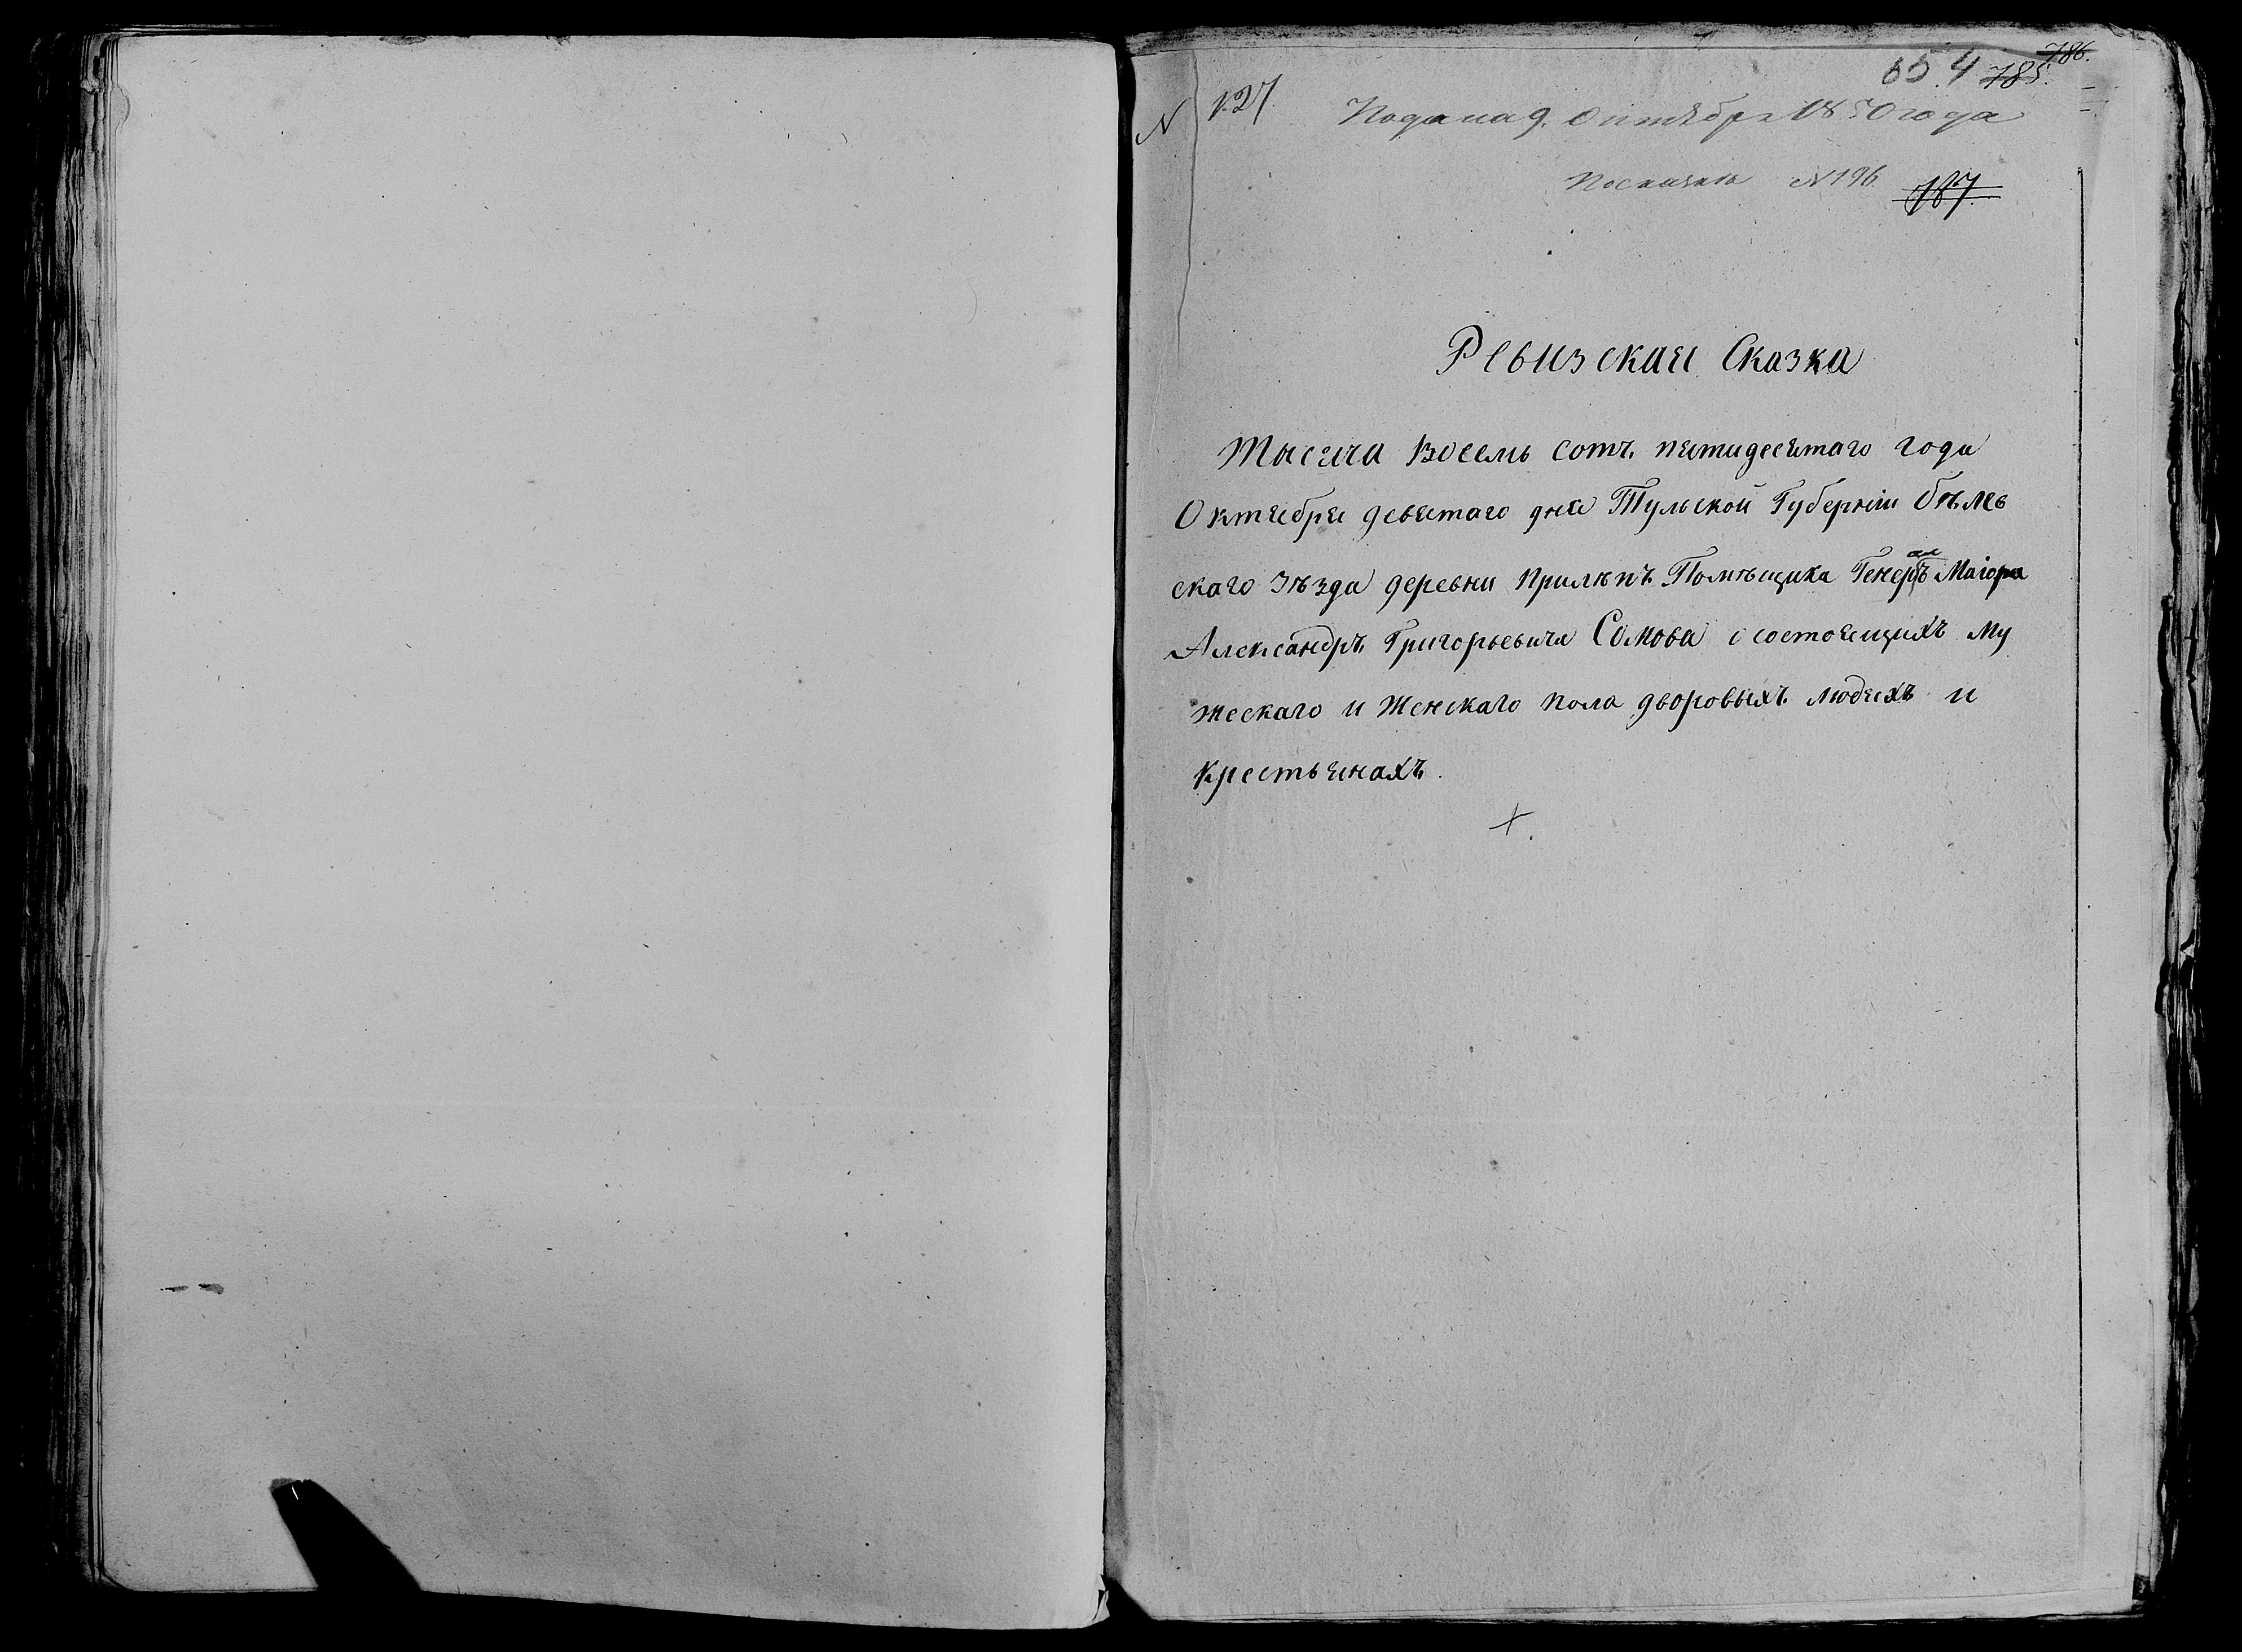 654 785. 786.
N 127.
Подана 9. Октября 1850 года
По сказкѣ N 196. 787.
Ревизская Сказка
Тысяча Восемь сотъ пятидесятаго года
Октября девятаго дня Тульской Губерніи Бѣлев
скаго уѣзда деревни Прилѣпъ Помѣщика Генералъ Маіора
Александръ Григорьевича Сомова о состоящихъ му
жескаго и Женскаго пола дворовыхъ людяхъ и
Крестьянахъ.